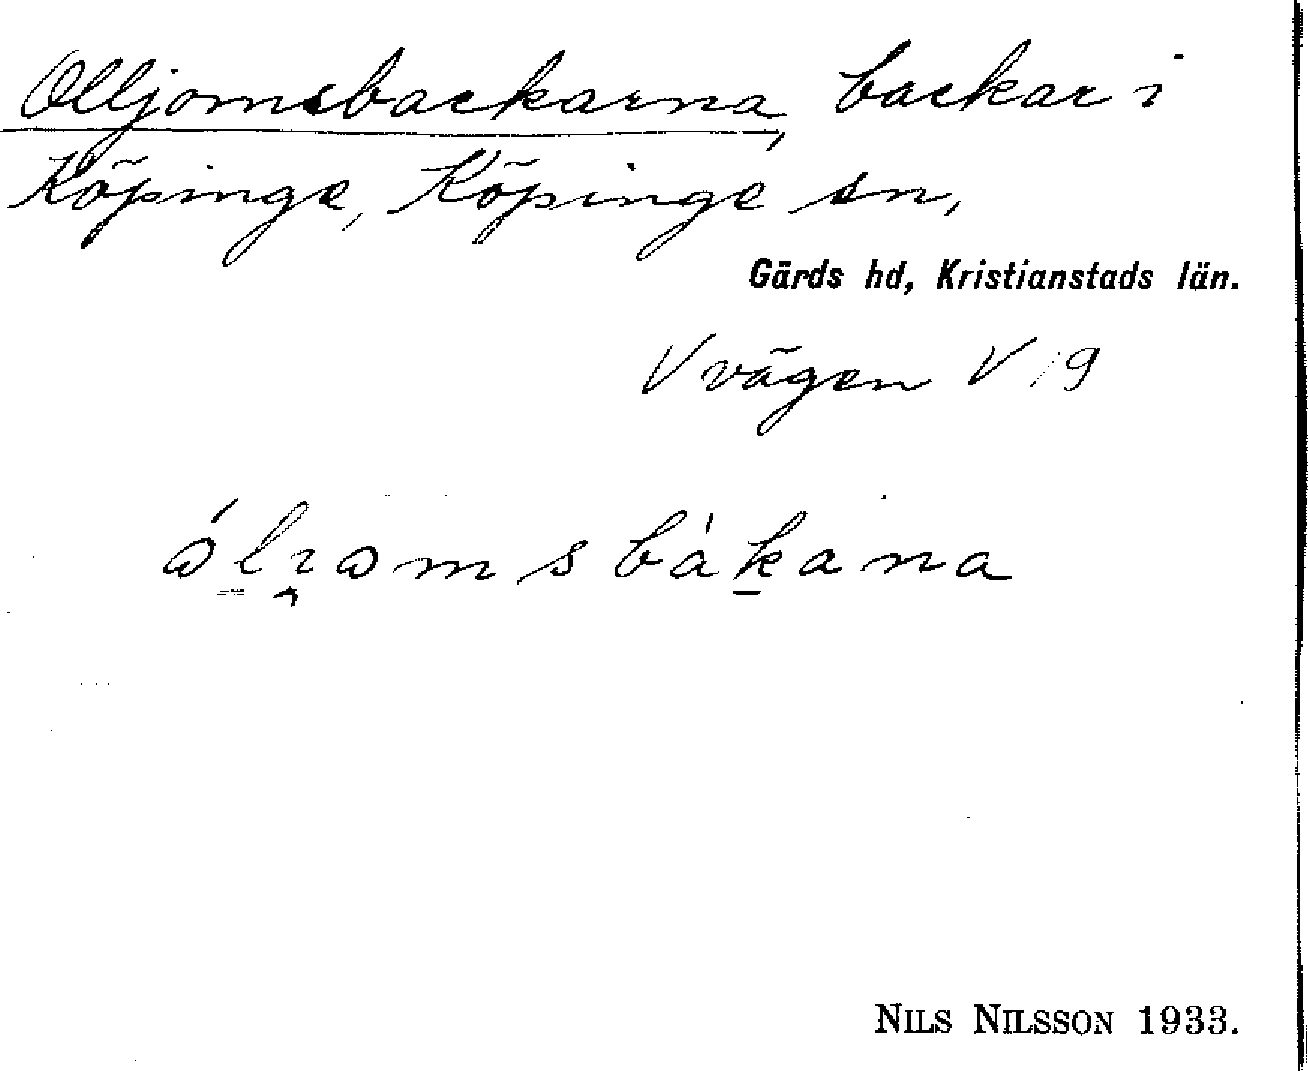 Olljomsbackarna, backar i
Köpinge, Köpinge sn,
Gärds hd, Kristianstads län.
V vägen V 19
NILS NILSSON 1933.